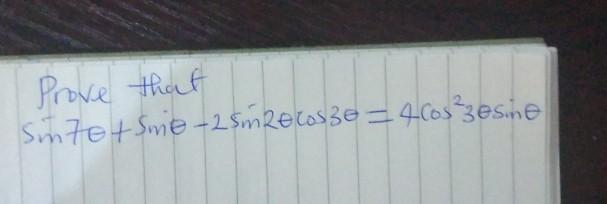 Prove that
sin7θ + sinθ - 2sin2θcos3θ = 4cos²3θsinθ